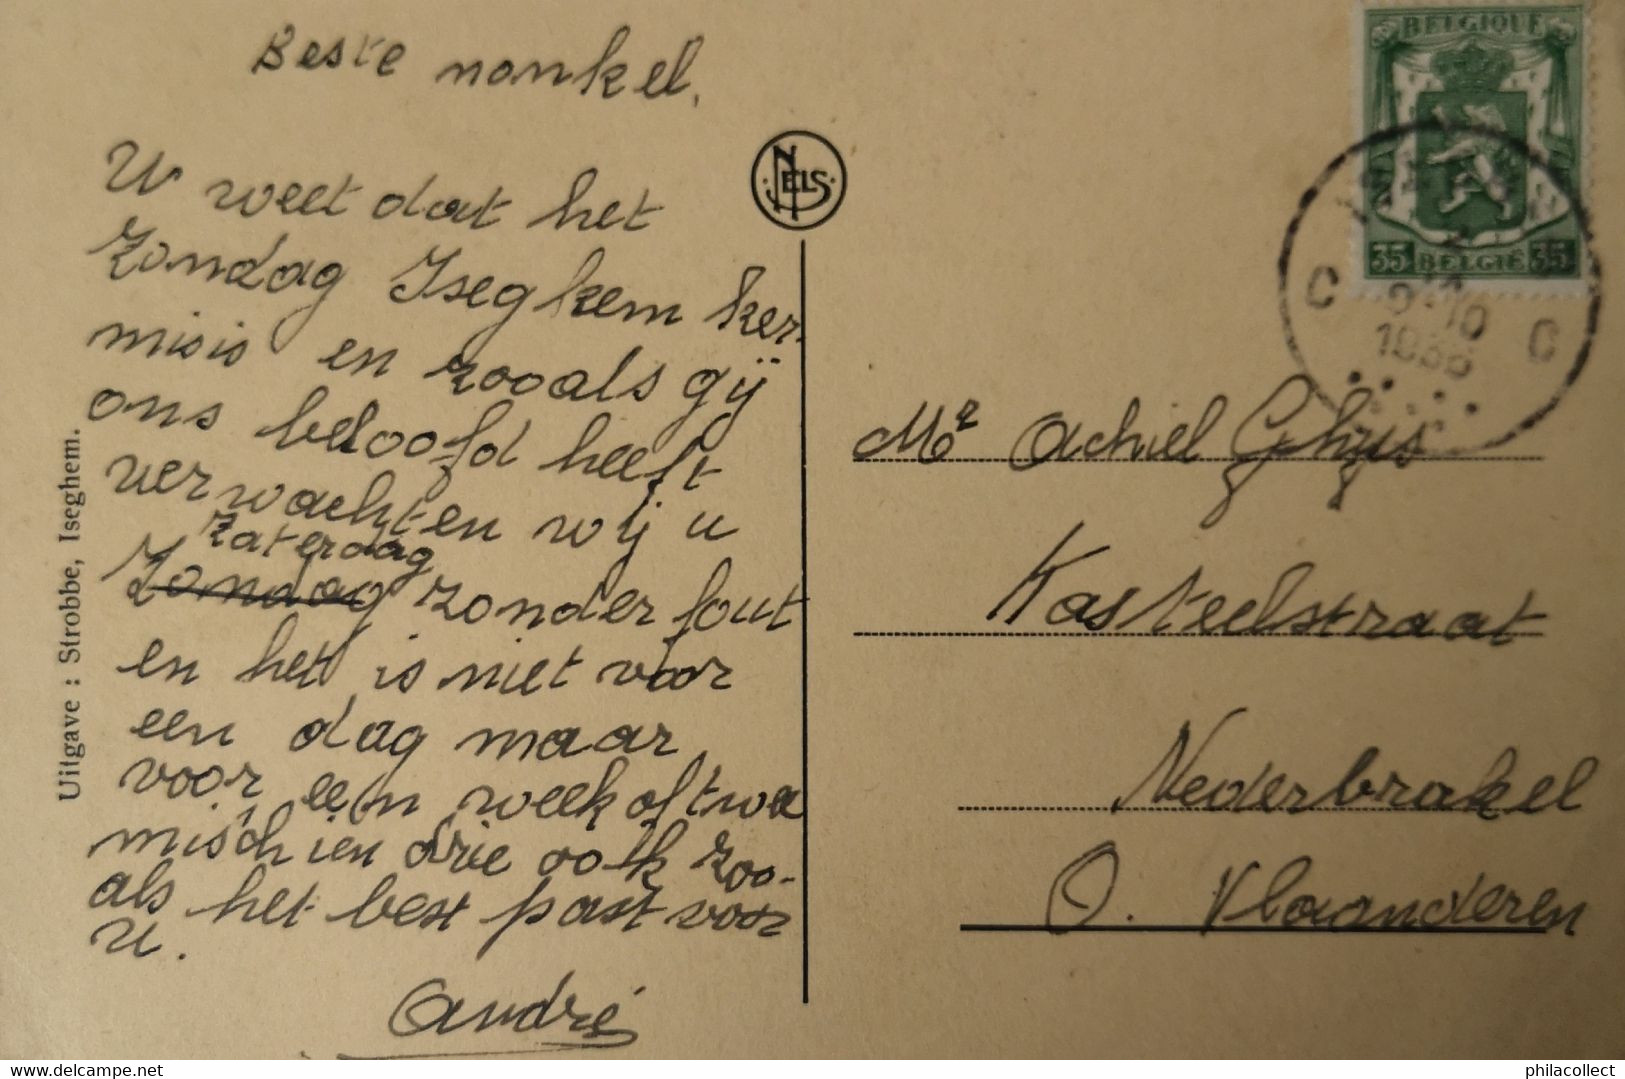 Beste nonkel,
U weet dat het
Zondag Iseghem ker-
misis en zooals gij
ons beloofd heeft
verwachten wij u
Zaterdag
Zondag zonder fout
en het is niet voor
een dag maar
voor een week of twee
misschien drie ook zoo-
als het best past voor
U.
André
Uitgave : Strobbe, Iseghem.
NELS
BELGIQUE
35 BELGIË 35
C C
9-10
Mr Achiel Ghys
Kasteelstraat
Nederbrakel
O. Vlaanderen
philacollect
delcampe.net